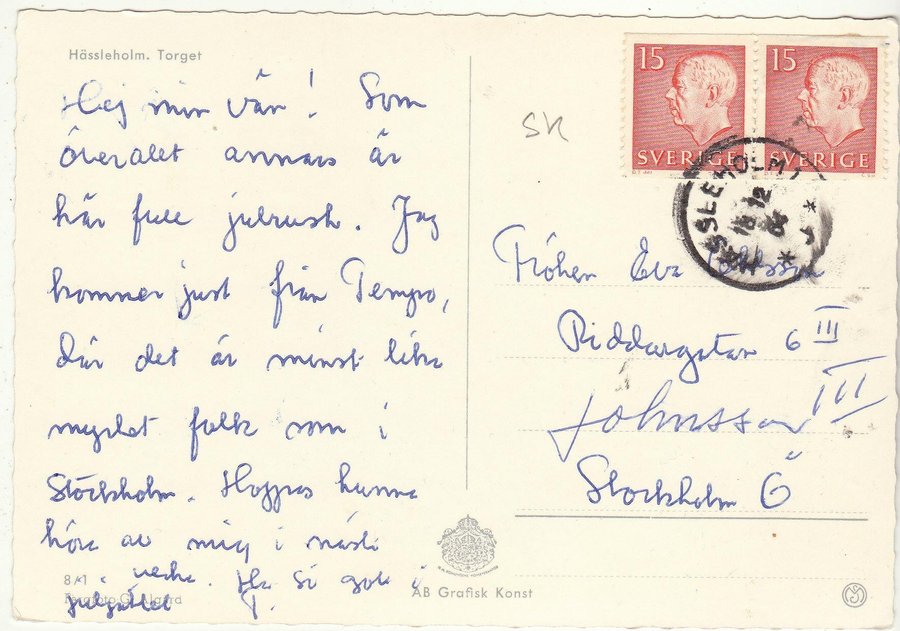 Hässleholm. Torget
Hej min vän! Som
överallt annars är
här full julrush. Jag
kommer just från Tempo,
där det är minst lika
mycket folk som i
Stockholm. Hoppas kunna
höra av mig i nästa
vecka. Ha så gott i
julgottet
8/1
Fergfoto: G. Algård
SK
15 15
SVERIGE SVERIGE
HÄSSLEHOLM 1
Fröken Eva
Riddargatan 6 III
Johnsson III
Stockholm Ö
AB Grafisk Konst